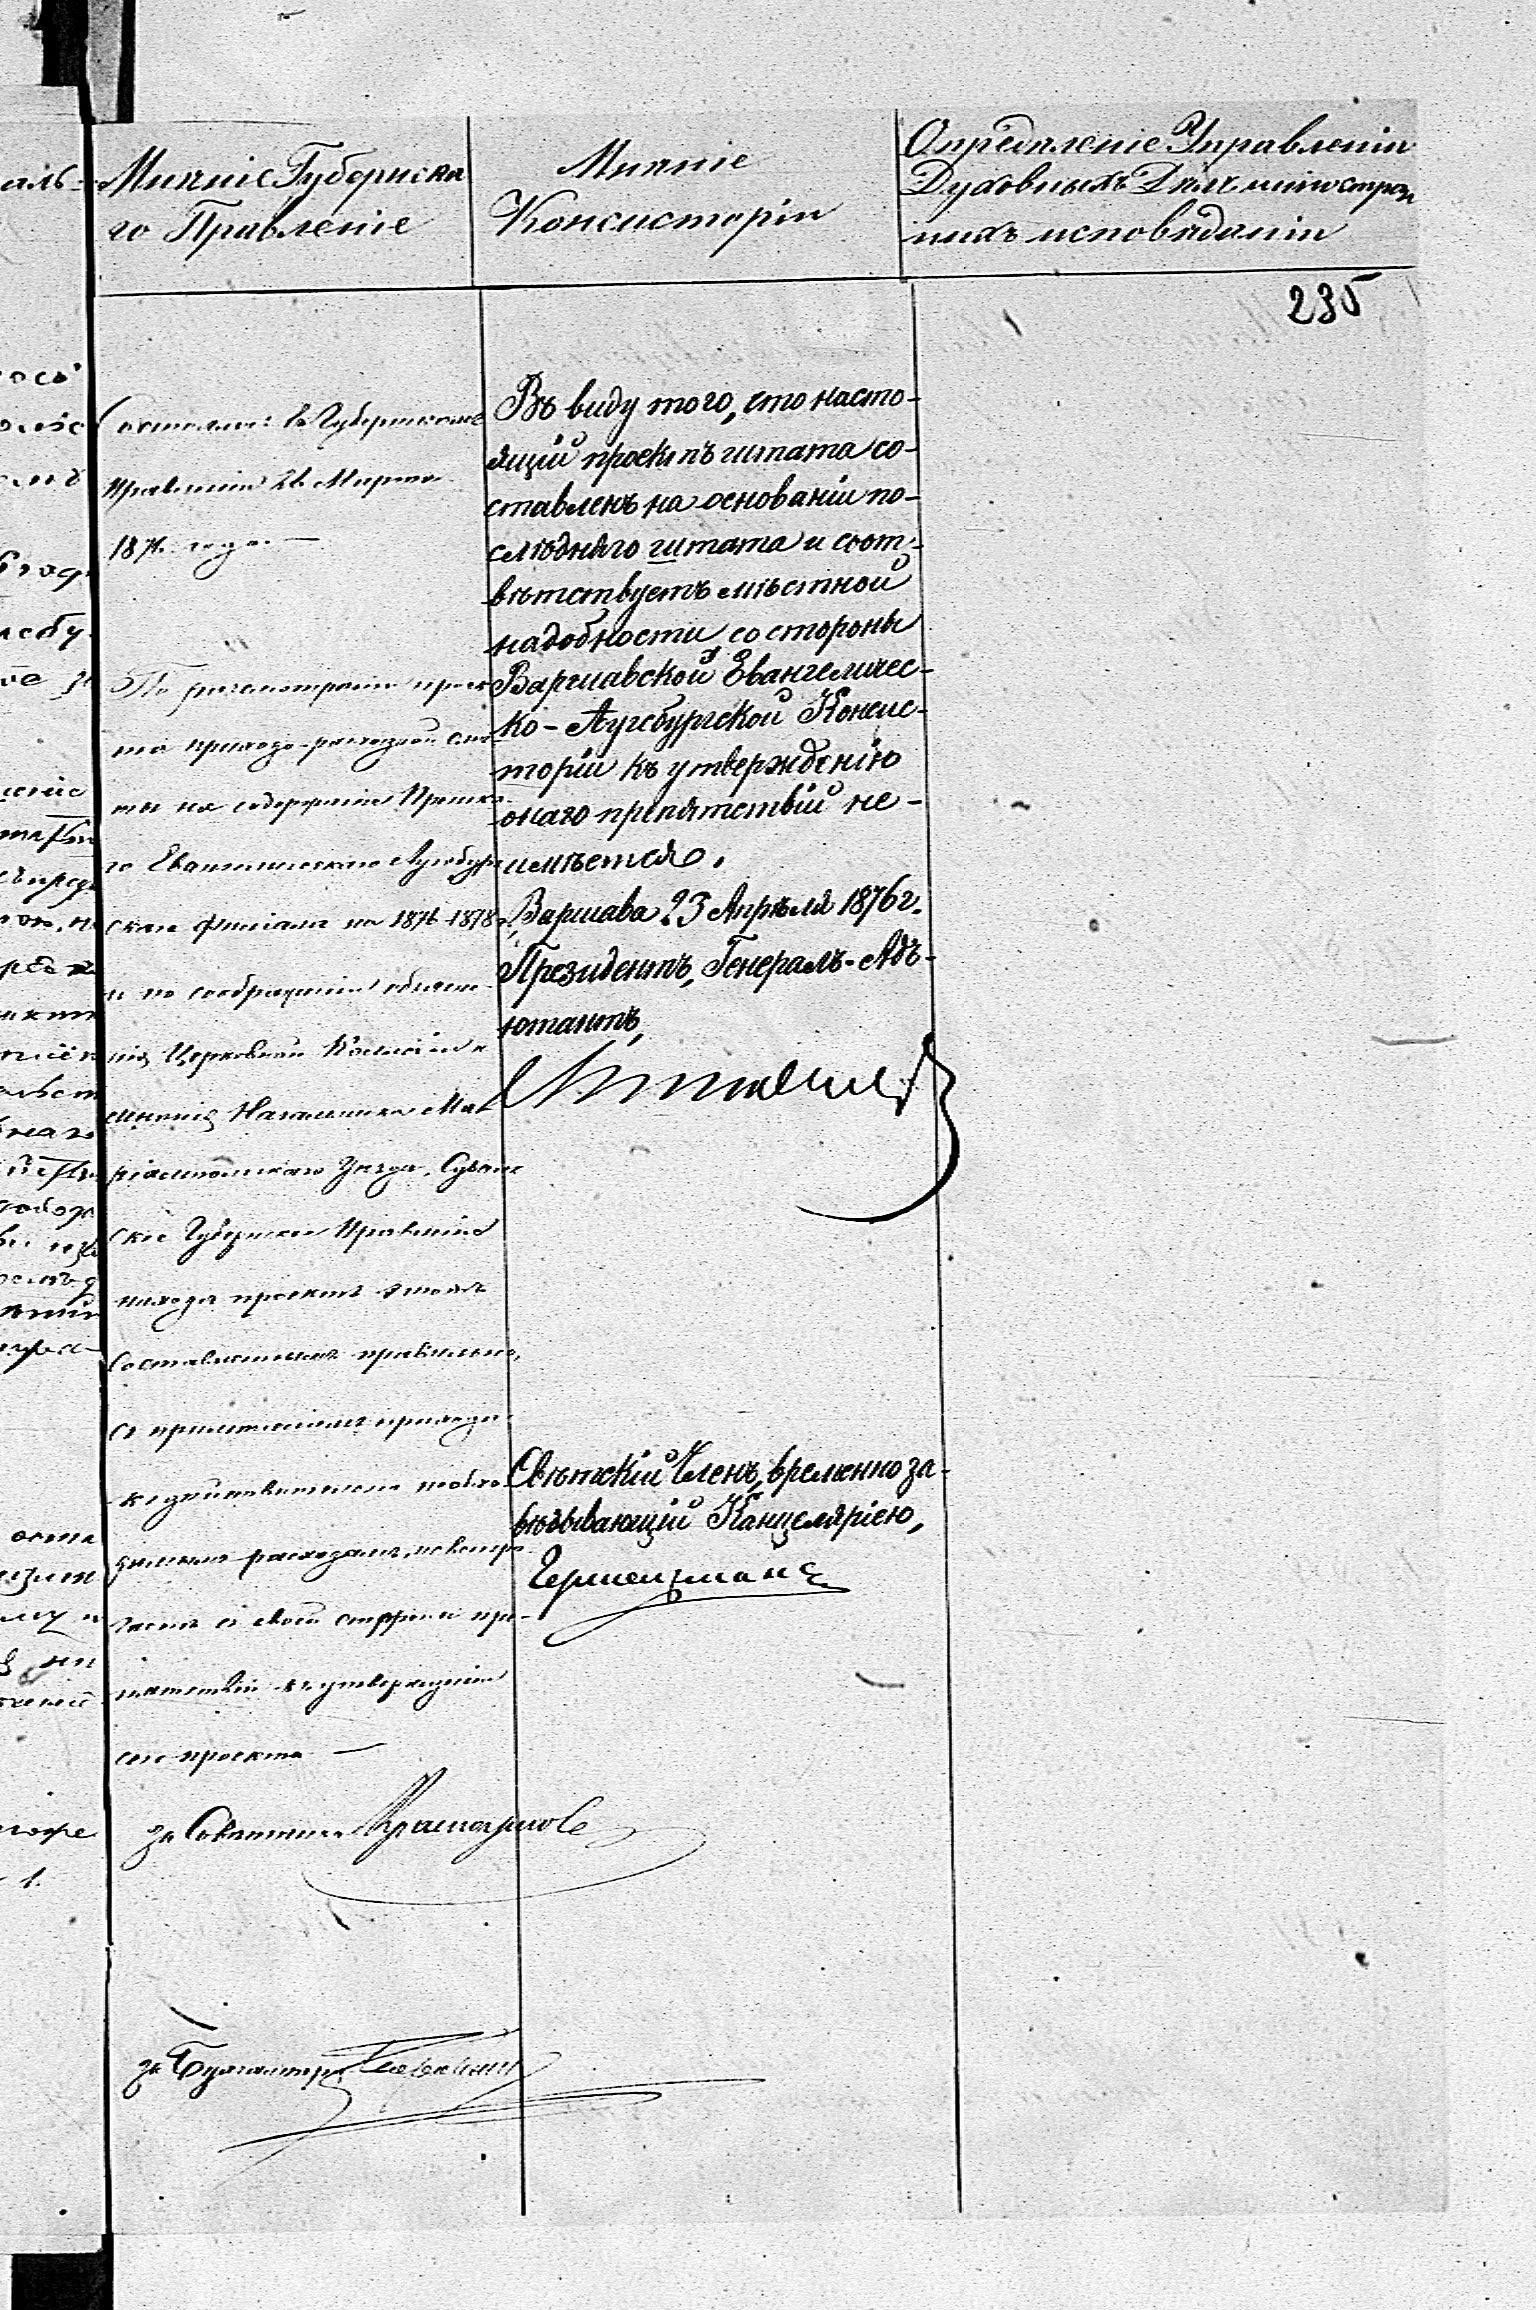 Мнѣніе Губернска
го Правленіе
Мнѣніе
Консисторіи
Опредѣленіе Управленіи
Духовныхъ Дѣлъ иностран
ныхъ исповѣданіи
235
Губернскомъ
Правленіи Марта
187 года. —
По разсмотреніи проек
та приходо-расходной смѣ
ты на содержаніе
го Евангелическаго Аугсбург
скаго Филіала на 1876-1878 г.
и по соображеніи объясне
нія Церковной Коллегіи и
мнѣнія Начальника Ма
ріампольскаго Уѣзда, Сувалк
ское Губернское Правленіе
находя проектъ этотъ
составленнымъ правильно,
съ примѣненіемъ прихода
къ дѣйствительно необхо
димымъ расходамъ, не встрѣ
чаетъ съ своей стороны пре-
пятствій къ утвержденію
сего проекта —
за Совѣтника
за Бухгалтера
Въ виду того, что насто-
ящій проектъ штата со-
ставленъ на основаніи по-
слѣдняго штата и соот-
вѣтствуетъ мѣстной
надобности, со стороны
Варшавской Евангеличес-
ко-Аугсбургской Консис-
торіи къ утвержденію
онаго препятствій не-
имѣется.
Варшава 23 Апрѣля 1876 г.
Президентъ, Генералъ-Адъ-
ютантъ,
Свѣтскій Членъ, временно за-
вѣдывающій Канцеляріею,